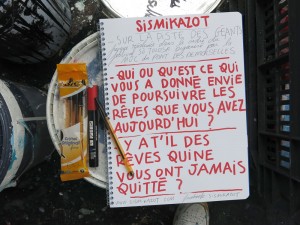 SISMIKAZOT
- SUR LA PISTE DES GÉANTS
PARC DU PONT DES DEMOISELLES
- QUI OU QU'EST CE QUI
VOUS A DONNÉ ENVIE
DE POURSUIVRE LES
RÊVES QUE VOUS AVEZ
AUJOURD'HUI ?
- Y AT'IL DES
RÊVES QUI NE
VOUS ONT JAMAIS
QUITTÉ ?